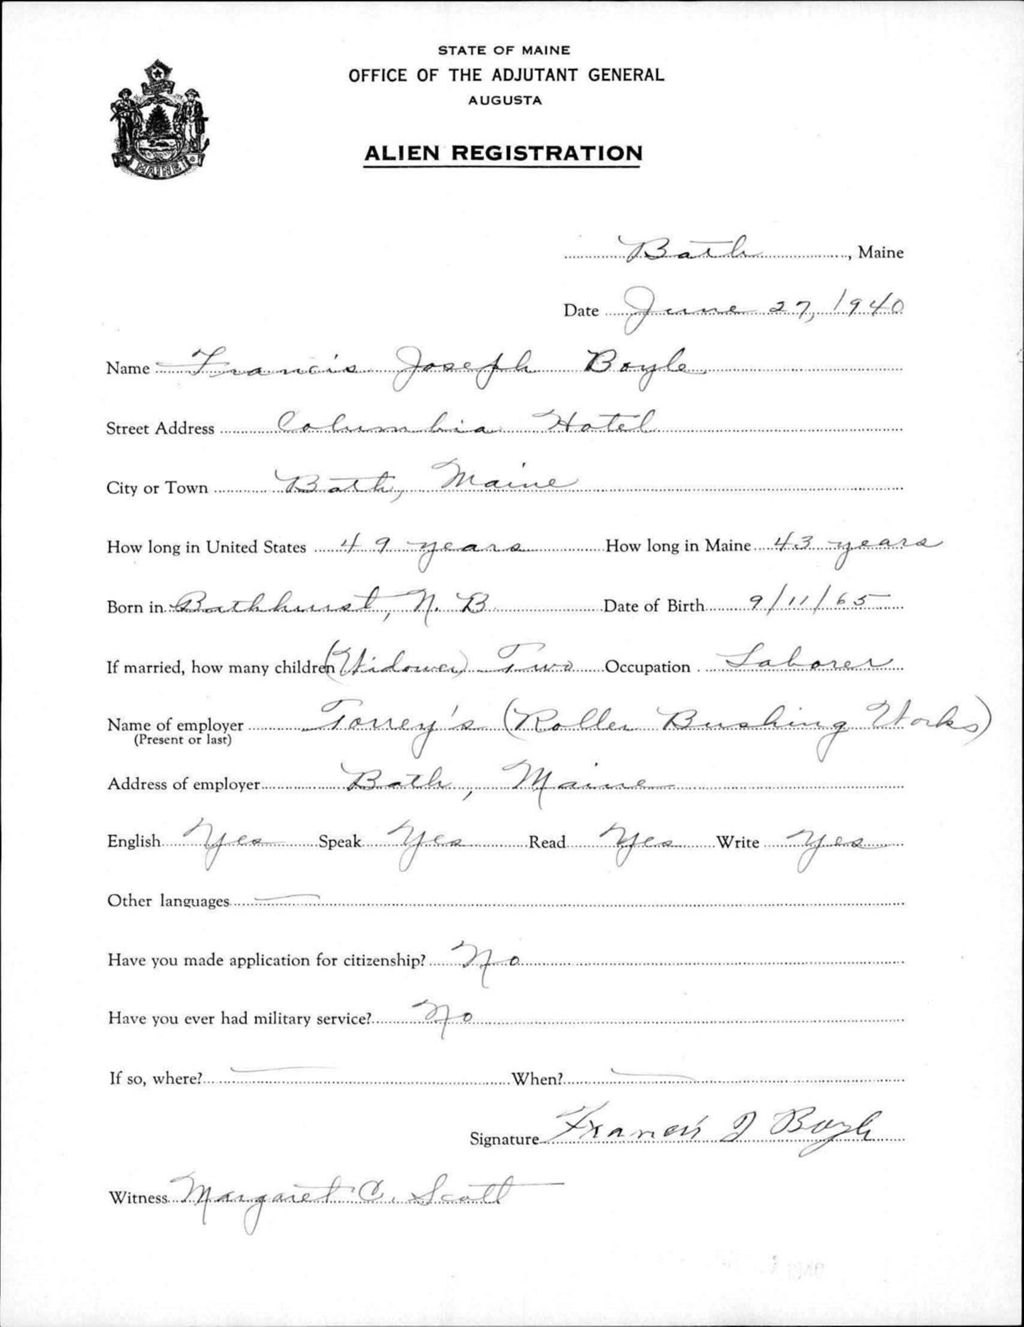 STATE OF MAINE
OFFICE OF THE ADJUTANT GENERAL
AUGUSTA
ALIEN REGISTRATION
MAINE
Bath, Maine
Date June 27, 1940
Name Francis Joseph Boyle
Street Address Columbia Hotel
City or Town Bath, Maine
How long in United States 49 years How long in Maine 43 years
Born in Bathhurst, N. B. Date of Birth 9/11/65
If married, how many children (Widower) Two Occupation Laborer
Name of employer Torrey's (Roller Bushing Works)
(Present or last)
Address of employer Bath, Maine
English Yes Speak Yes Read Yes Write Yes
Other languages —
Have you made application for citizenship? No
Have you ever had military service? No
If so, where? — When? —
Signature Francis J Boyle
Witness Margaret C. Scott